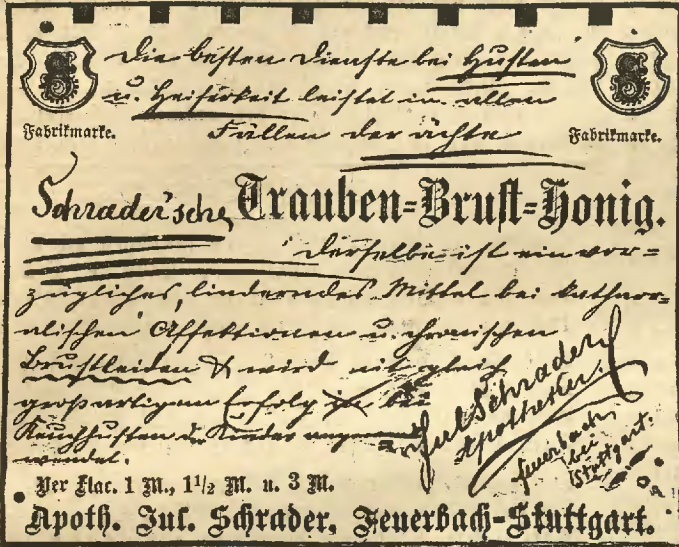 Die besten Dienste bei Husten
u. Heiserkeit leistet in allen
Fällen der ächte
Fabrikmarke.
Fabrikmarke.
Schrader'sche Trauben-Brust-Honig.
Derselbe ist ein vor-
zügliches, linderndes Mittel bei katharr-
alischen Affektionen u. chronischen
Brustleiden & wird mit gleich
großartigem Erfolg bei
Keuchhusten der Kinder angewendet.
Jul Schrader
Apotheker.
Feuerbach
bei
Stuttgart.
Per Flac. 1 M., 1½ M. u. 3 M.
Apoth. Jul. Schrader, Feuerbach-Stuttgart.